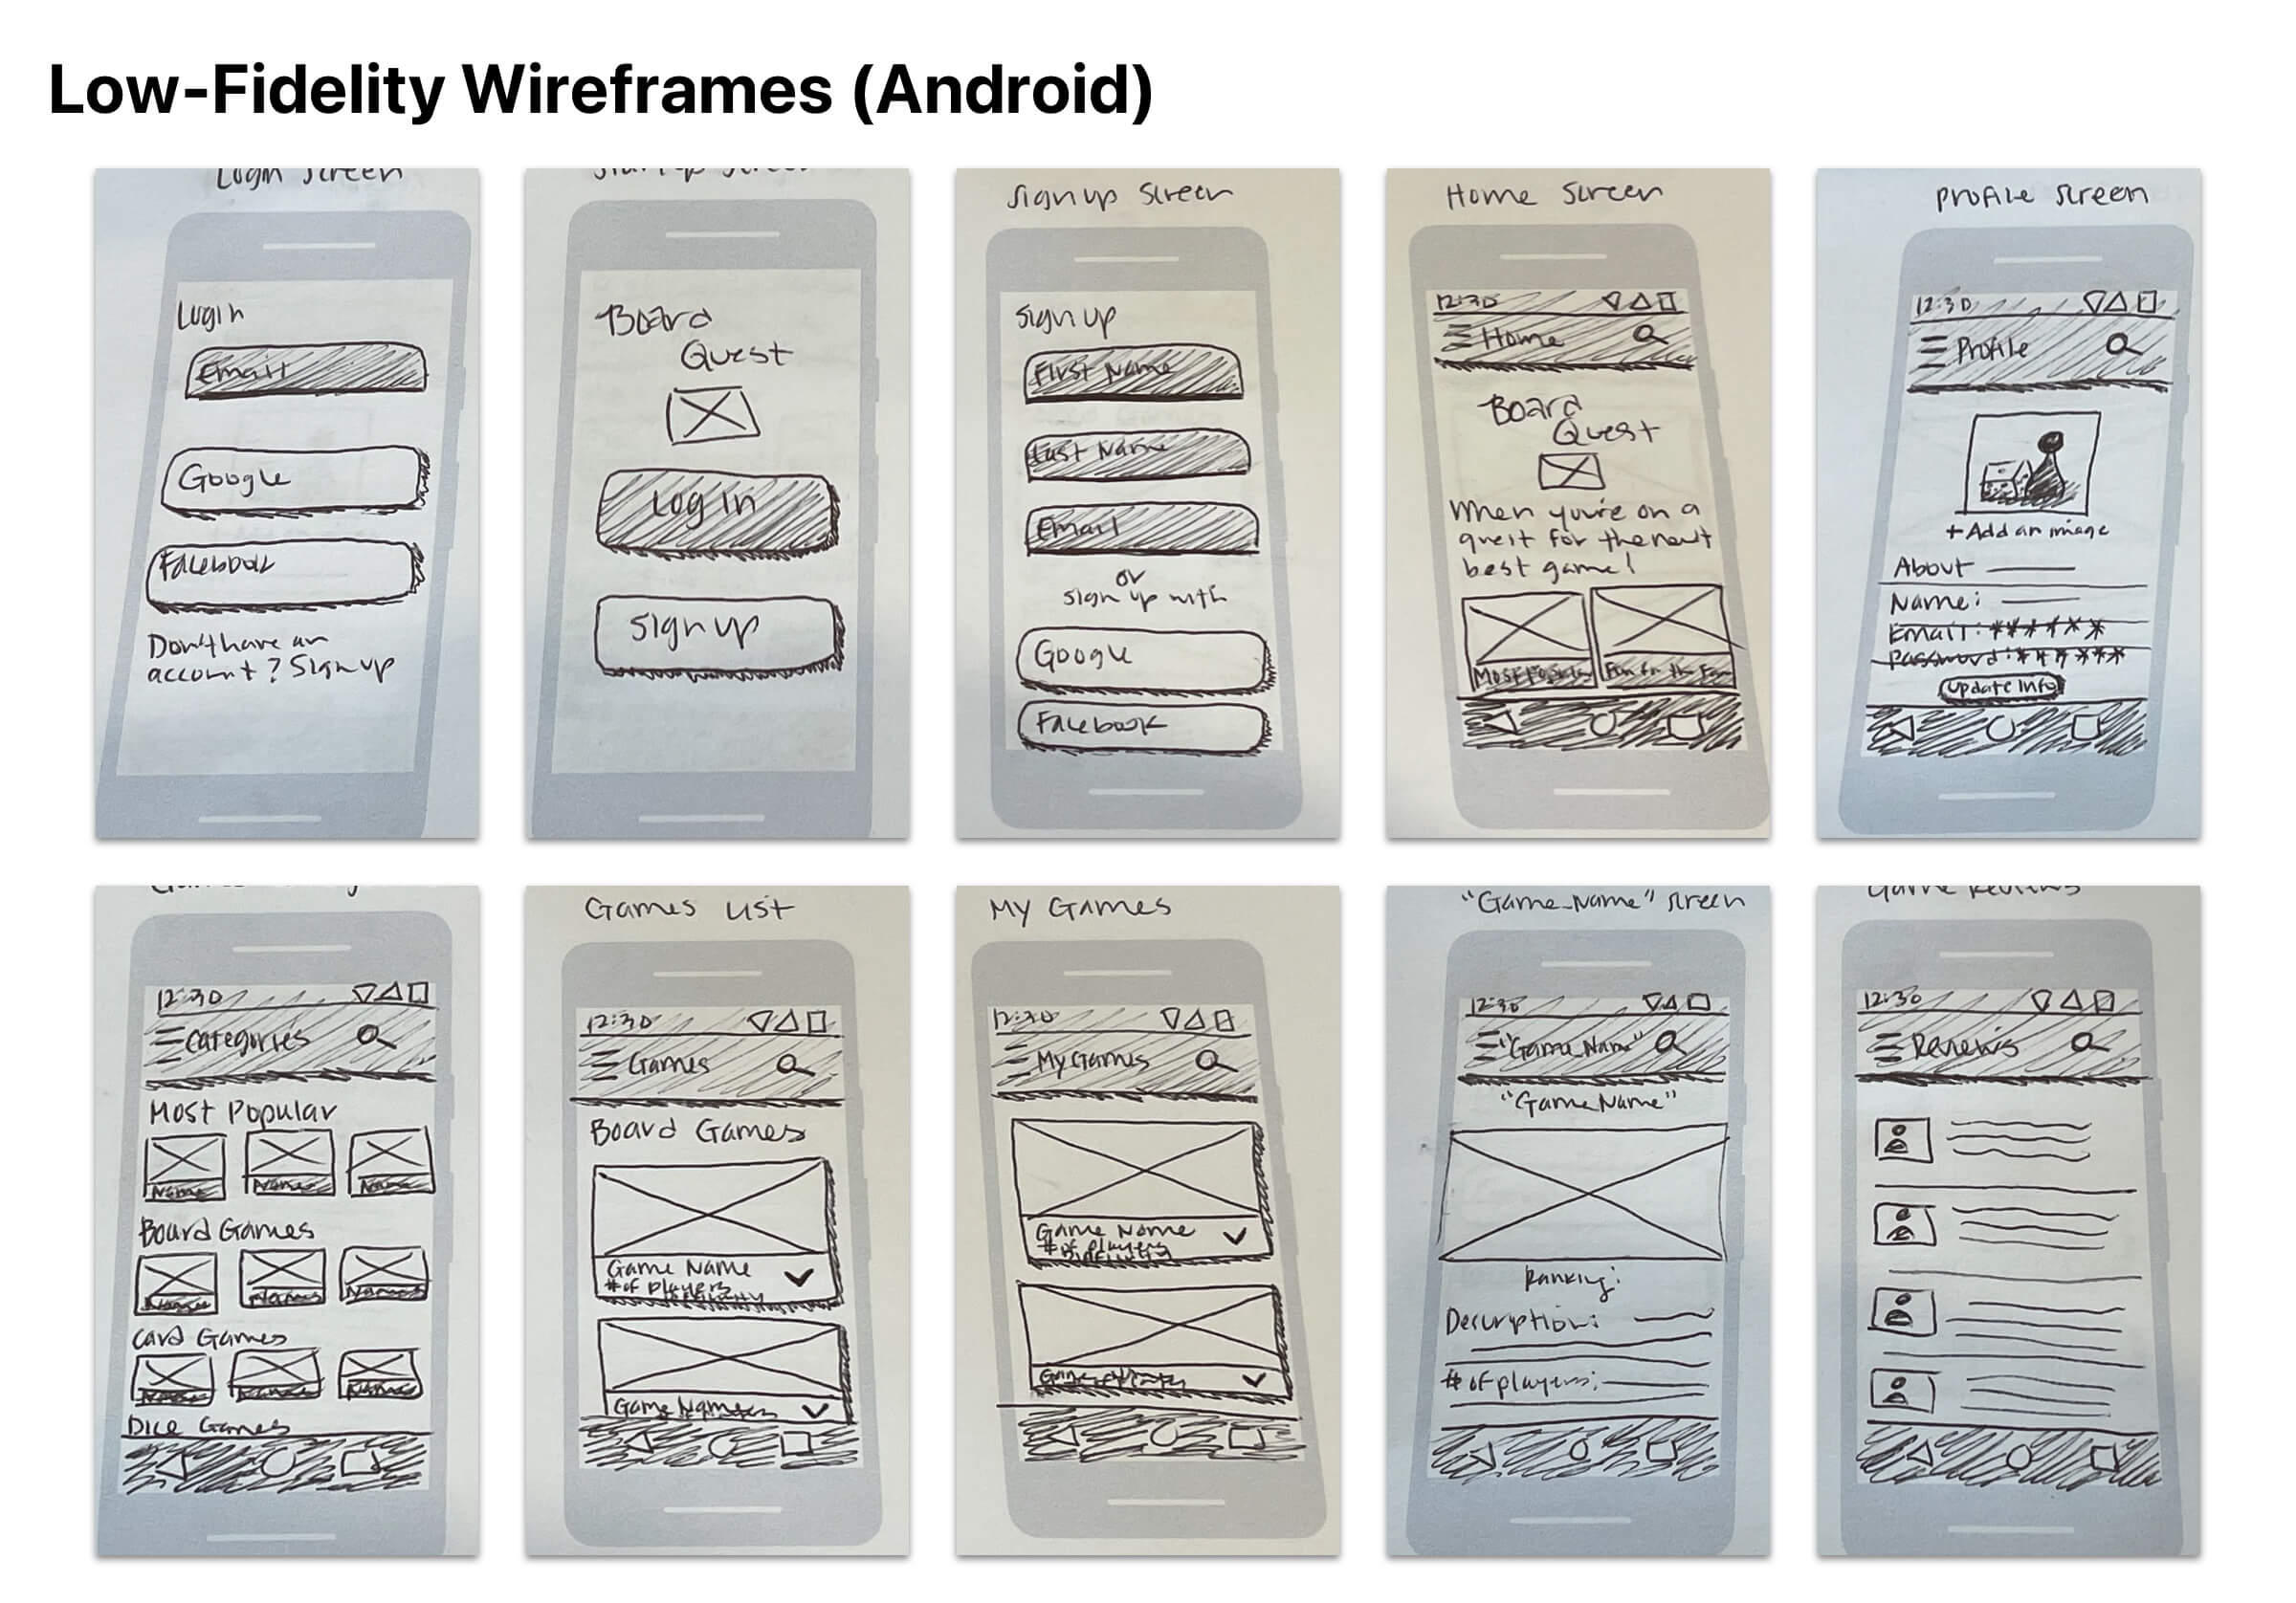 Low-Fidelity Wireframes (Android)
Login Screen
Login
Email
Google
Facebook
Don't have an
account? Sign up
Startup Screen
Board
Quest
Log in
Sign up
Sign up Screen
Sign up
First Name
Last Name
Email
or
sign up with
Google
Facebook
Home Screen
12:30
Home
Board
Quest
When you're on a
quest for the next
best game!
Most Popular
Fun for the Fam
Profile Screen
12:30
Profile
+ Add an image
About
Name:
Email: *******
Password: ******
Update Info
12:30
Categories
Most Popular
Name Name Name
Board Games
Name Name Name
Card Games
Name Name Name
Dice Games
Games List
12:30
Games
Board Games
Game Name
# of players
Game Name
My Games
12:30
My Games
Game Name
# of players
"Game_Name" screen
12:30
"Game_Name"
"Game_Name"
Ranking:
Description:
# of players:
Game Reviews
12:30
Reviews